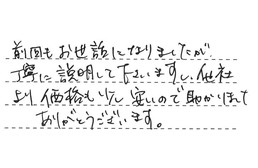 前回もお世話になりましたが
丁寧に説明して下さいますし、他社
より価格も少し安いので助かります
ありがとうございます。